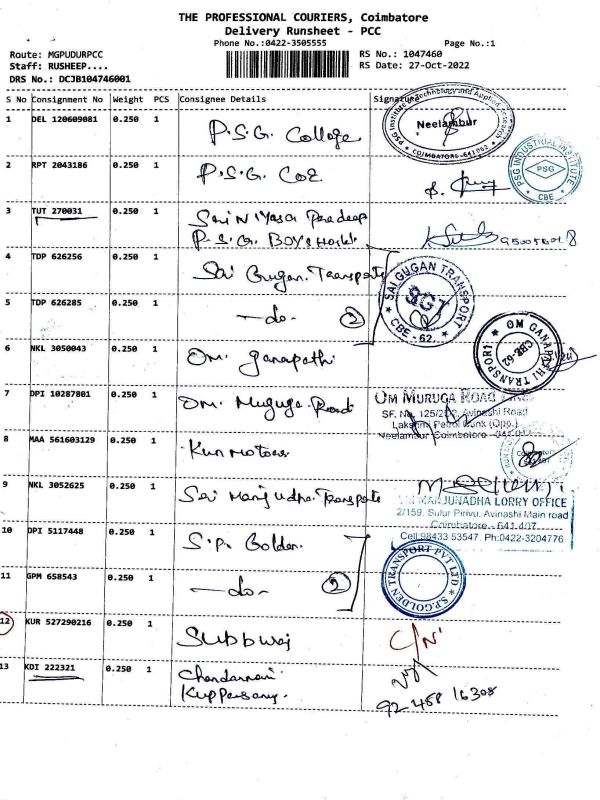 THE PROFESSIONAL COURIERS, Coimbatore
Delivery Runsheet - PCC
Phone No.:0422-3505555 Page No.:1
Route: MGPUDURPCC RS No.: 1047460
Staff: RUSHEEP.... RS Date: 27-Oct-2022
DRS No.: DCJB104746001
S No Consignment No Weight PCS Consignee Details Signature
1 DEL 120609081 0.250 1 P.S.G. College
PSG Institute of Technology and Applied Research
Neelambur
COIMBATORE-641 062
2 RPT 2043186 0.250 1 P.S.G. COE
PSG INDUSTRIAL INSTITUTE
PSG
CBE
3 TUT 270031 0.250 1
P.S.G. BOYS Hostel
4 TDP 626256 0.250 1 Sai Gugan Transports
SAI GUGAN TRANSPORT
SGT
CBE - 62.
5 TDP 626285 0.250 1 - do - 2
6 NKL 3050043 0.250 1 Om. Ganapathi
OM GANAPATHI TRANSPORT
CBE-62
7 DPI 10287801 0.250 1 Om. Muguga Road
OM MURUGA ROAD
SF. No. Avinashi Road
Lakshmi Petrol Bunk (Opp.)
Neelambur Coimbatore
8 MAA 561603129 0.250 1 Kun Motors
9 NKL 3052625 0.250 1 Sai Manjudna. Transports
MANJUNADHA LORRY OFFICE
2/159. Sulur Pirivu, Avinashi Main road
Coimbatore - 641 407
Cell 98433 53547. Ph:0422-3204776
10 DPI 5117448 0.250 1 S.P. Golden
S.P.GOLDEN TRANSPORT PVT LTD
11 GPM 658543 0.250 1 - do - 2
12 KUR 527290216 0.250 1 Subbwaj C/N
13 KDI 222321 0.250 1 Chandamani
Kuppusamy.
92 458 16308